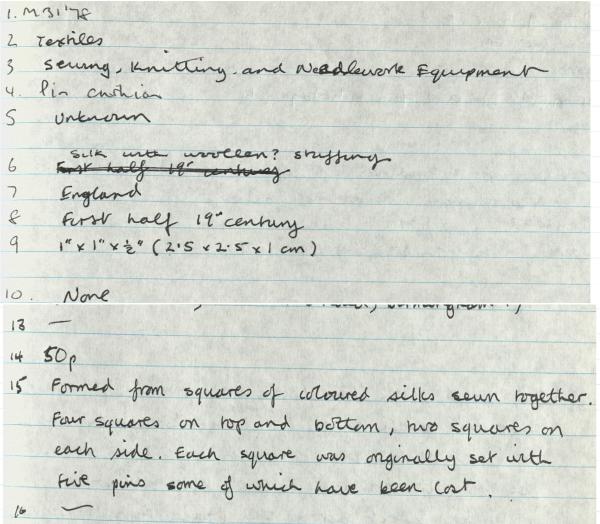 1. M31'78
2 Textiles
3 Sewing, Knitting and Needlework Equipment
4. Pin cushion
5 Unknown
Silk with woollen? stuffing
6 First half 19th century
7 England
8 First half 19th century
9 1" x 1" x ½" (2.5 x 2.5 x 1 cm)
10. None
13 —
14 50p
15 Formed from squares of coloured silks sewn together.
Four squares on top and bottom, two squares on
each side. Each square was originally set with
five pins some of which have been lost.
16 —